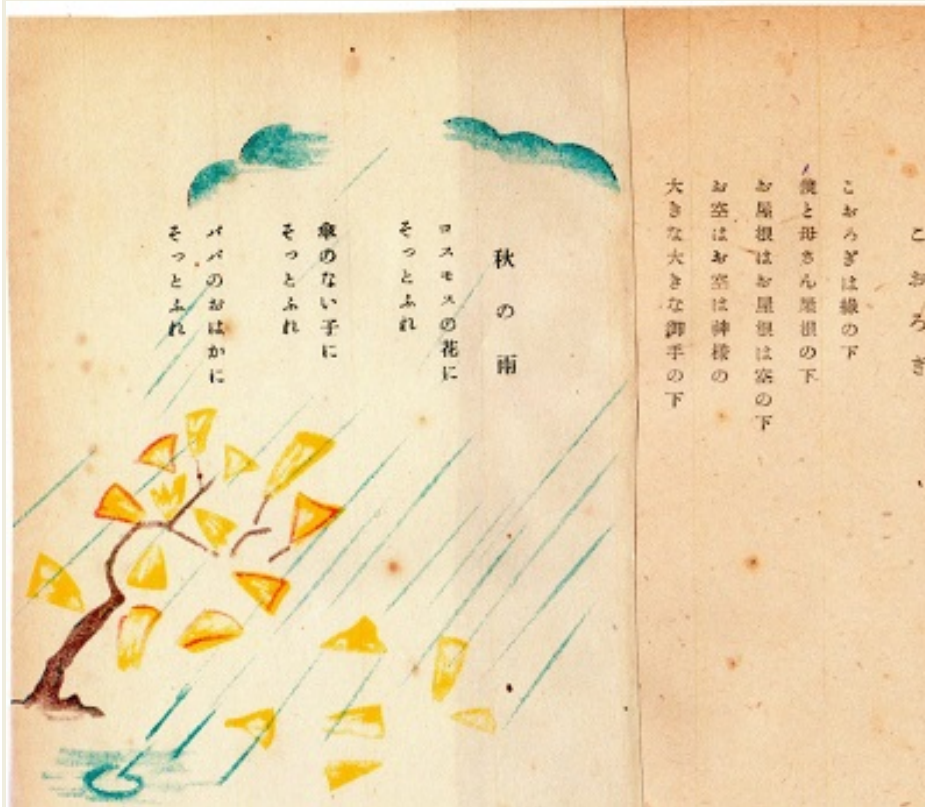 こおろぎ
こおろぎは縁の下
僕と母さん屋根の下
お屋根はお屋根は空の下
お空はお空は神様の
大きな大きな御手の下
秋の雨
コスモスの花に
そっとふれ
傘のない子に
そっとふれ
パパのおはかに
そっとふれ